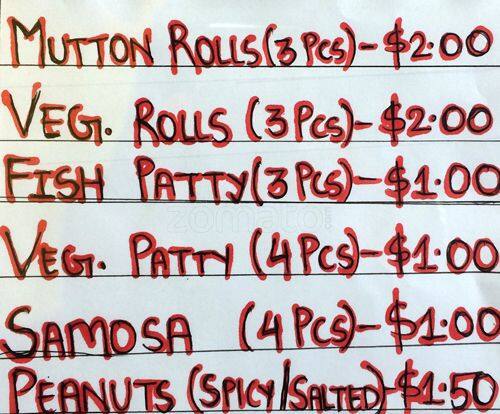 MUTTON ROLLS (3 PCS) - $2.00
VEG. ROLLS (3 PCS) - $2.00
FISH PATTY (3 PCS) - $1.00
zomato.com
VEG. PATTY (4 PCS) - $1.00
SAMOSA (4 PCS) - $1.00
PEANUTS (SPICY/SALTED) - $1.50